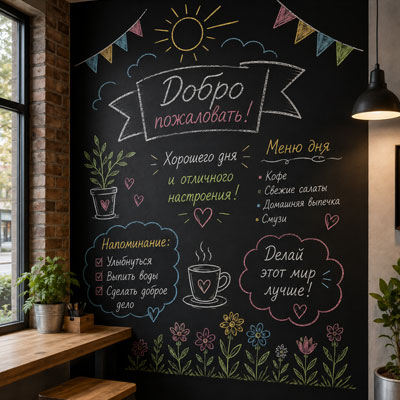 Добро
пожаловать!
Хорошего дня
и отличного
настроения!
Меню дня
Кофе
Свежие салаты
Домашняя выпечка
Смузи
Напоминание:
Улыбнуться
Выпить воды
Сделать доброе
дело
Делай
этот мир
лучше!